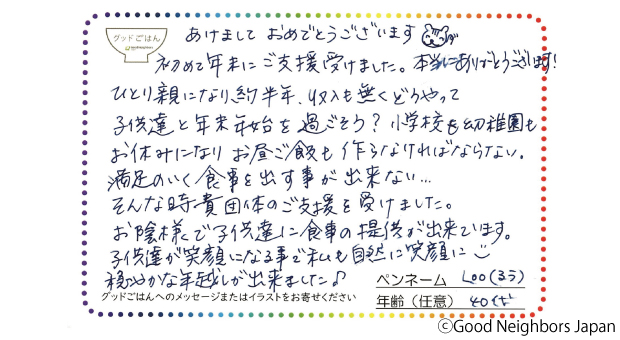 グッドごはん
あけまして おめでとうございます
初めて年末にご支援受けました。本当にありがとうございます!
ひとり親になり、約半年、収入も無くどうやって
子供達と年末年始を過ごそう?小学校も幼稚園も
お休みになり お昼ご飯も作らなければならない。
満足のいく食事を出す事が出来ない…
そんな時、貴団体のご支援を受けました。
お陰様で子供達に食事の提供が出来ています。
子供達が笑顔になる事で私も自然に笑顔に
穏やかな年越しが出来ました♪
グッドごはんへのメッセージまたはイラストをお寄せください
ペンネーム Loo(るう)
年齢(任意) 40代
©Good Neighbors Japan